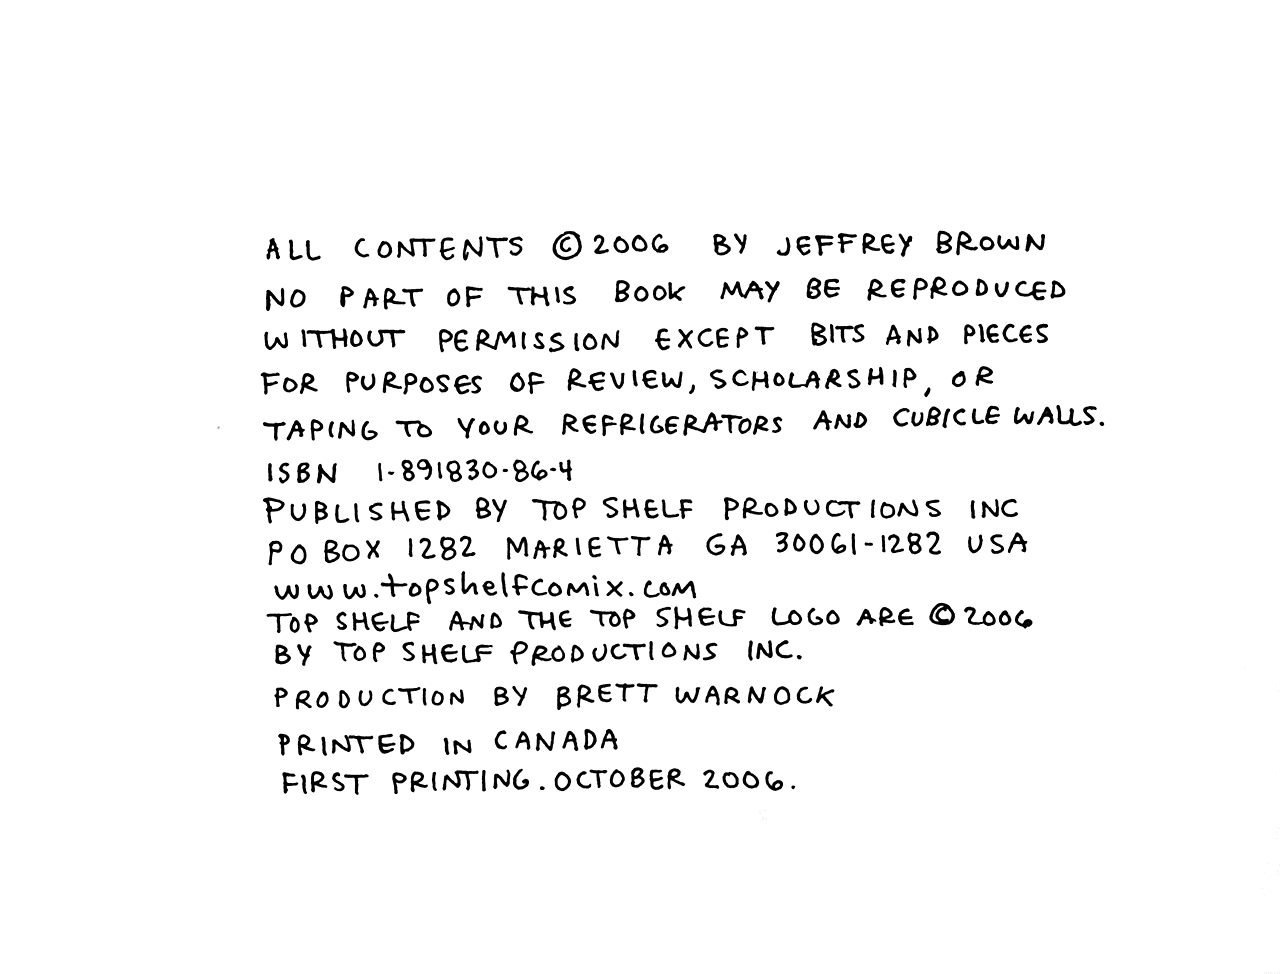 ALL CONTENTS © 2006 BY JEFFREY BROWN
NO PART OF THIS BOOK MAY BE REPRODUCED
WITHOUT PERMISSION EXCEPT BITS AND PIECES
FOR PURPOSES OF REVIEW, SCHOLARSHIP, OR
TAPING TO YOUR REFRIGERATORS AND CUBICLE WALLS.
ISBN 1-891830-86-4
PUBLISHED BY TOP SHELF PRODUCTIONS INC
PO BOX 1282 MARIETTA GA 30061-1282 USA
www.topshelfcomix.com
TOP SHELF AND THE TOP SHELF LOGO ARE © 2006
BY TOP SHELF PRODUCTIONS INC.
PRODUCTION BY BRETT WARNOCK
PRINTED IN CANADA
FIRST PRINTING. OCTOBER 2006.